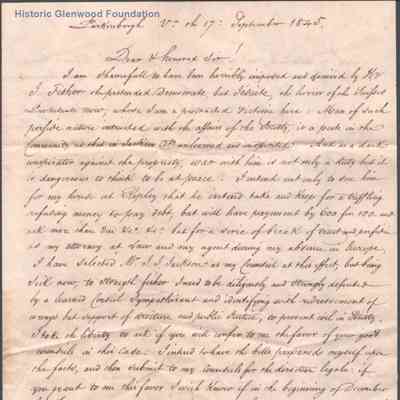 Historic Glenwood Foundation
Parkersburgh Va. th 17th September 1845.
Dear & honored Sir!
I am shamefull to have been horribly imposed and deceived by Mr
J. Fisher the pretended Democrate, but Jesuite, the horror of all
now, whose I am a pretended Victime here. Man of such
perfide nature intrusted with the affairs of the Society, is a pest in the
Community as that in Jackson unpunished and unexpected. And as a dark
conspirator against the prosperity, war with him is not only a duty but it
is dangerous to think to be at peace. I intend not only to sue him
for my house at Ripley that he intend take and keep for a triffling
refusing money to pay debt, but will have payment by 600 for 100. and
ask more than Vac. &c. &c. but for a serie of breek of trust and perfidie
as my attorney at Law and my agent during my absence in Europe.
I have selected Mr. J. J. Jackson as my Counsil at this effect, but being
Sick now, to strength fisher I need to be diligently and strongly defended
by a learned Consil Sympathisant and identifying with redressement of
wrongs but support of and public Justice, to prevent evil in Society.
I take the liberty to ask if you will confer to me the favor of your good
counsils in this Case. I intend to have the bill prepared myself upon
the facts, and then submit to my counsils for the direction legale. if
you grant to me this favor I wish know if in the beginning of December